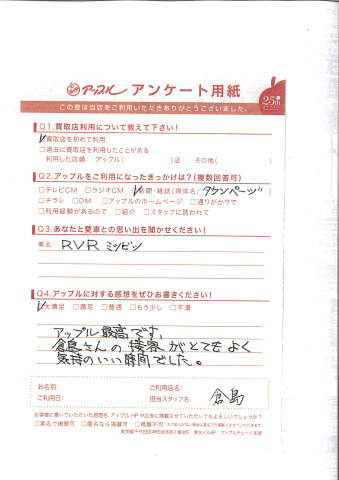 アップル アンケート用紙
この度は当店をご利用いただきありがとうございました。
25th
Q1.買取店利用について教えて下さい!
☑買取店を初めて利用
□過去に買取店を利用したことがある
利用した店舗: アップル( )店 その他( )
Q2.アップルをご利用になったきっかけは?(複数回答可)
□テレビCM □ラジオCM ☑新聞・雑誌(媒体名/タウンページ)
□チラシ □DM □アップルのホームページ □通りがかりで
□利用経験があるので □紹介 □スタッフに誘われて
Q3.あなたと愛車との思い出を聞かせください!
車名: RVR ミツビシ
Q4.アップルに対する感想をぜひお書きください!
☑大満足 □満足 □普通 □もう少し □不満
アップル最高です。
倉島さんの接客がとてもよく
気持のいい時間でした。
お名前: ご利用店名:
ご利用日: 担当スタッフ名: 倉島
お客様に書いていただいた感想を、アップルHPや広告に掲載させていただいてもよろしいでしょうか?
□実名で掲載可 □匿名なら掲載可 □掲載不可